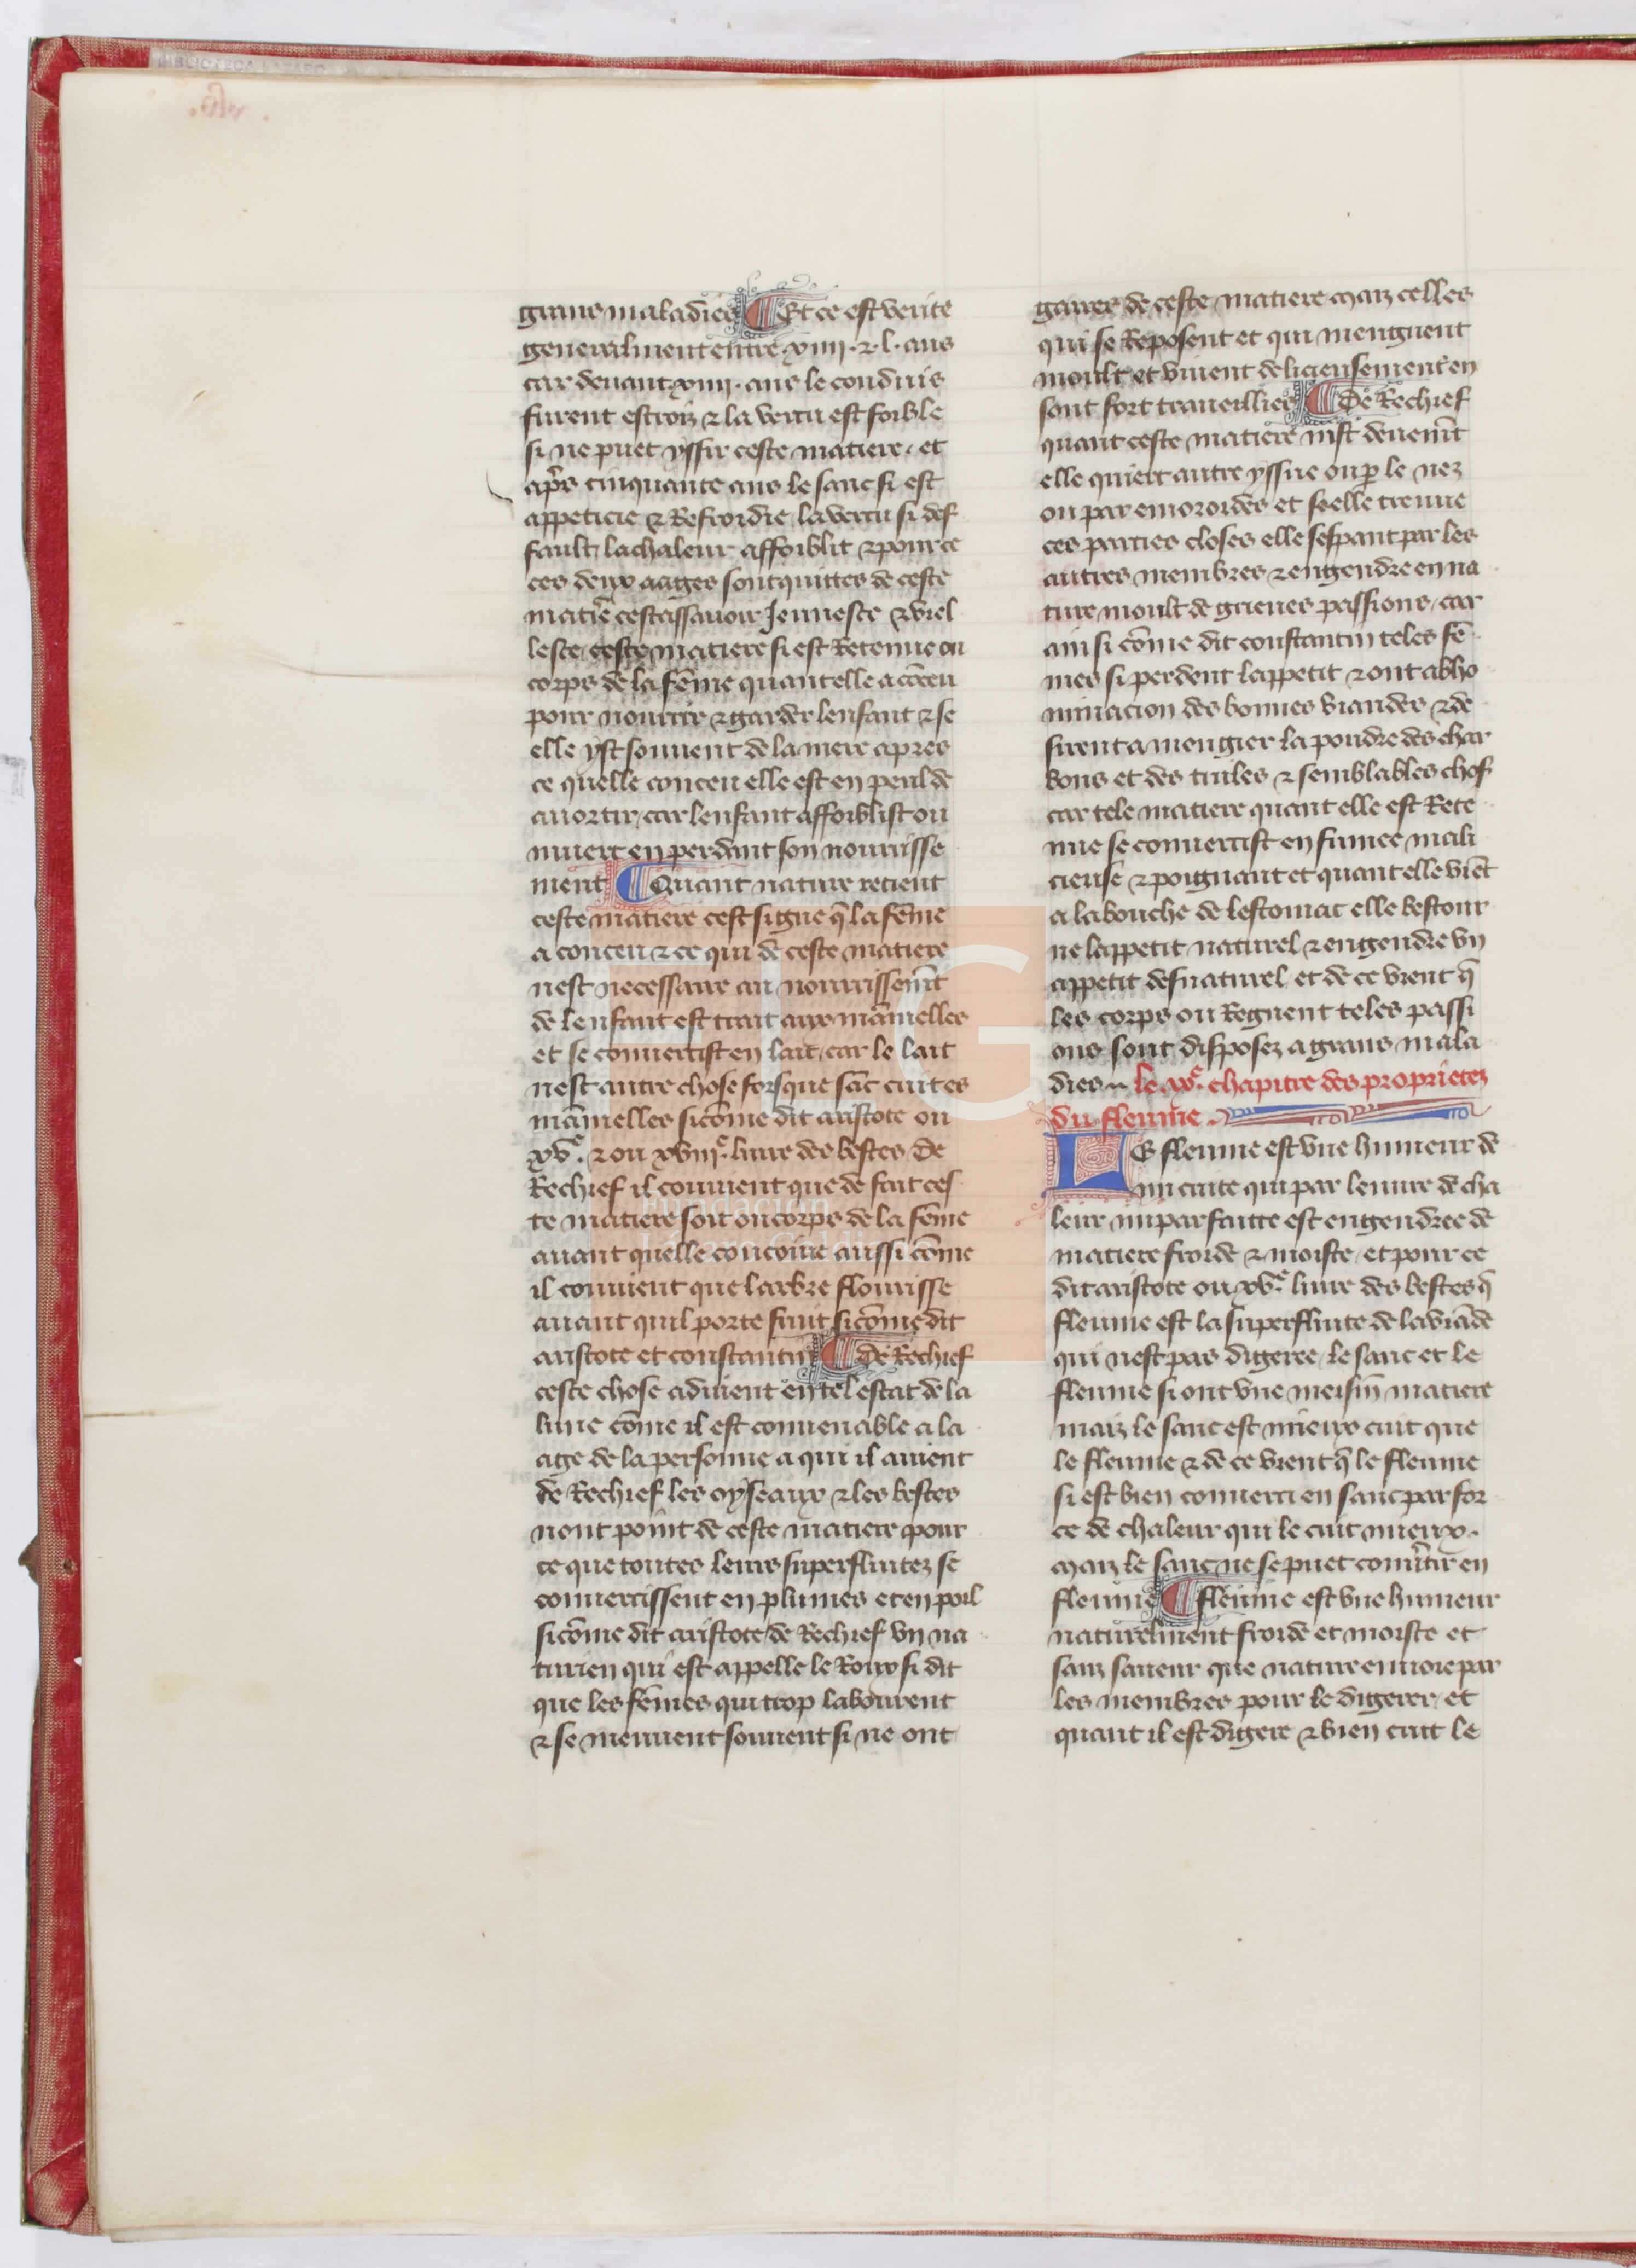 grans maladies ¶ Et ce est verite
generalment entre .xiiii. ⁊ .l. ans
car deuant .xiiii. ans le conduis
furent estroiz ⁊ la vertu est foible
si ne puet yssir ceste matiere. et
apr̃s cinquante ans le sanc si est
appeticie ⁊ Refroidie / la vertu si def
fault / la chaleur affoiblit ⁊ pour ce
ces deux aages sont quittes de ceste
matiẽ cest assauoir Jeunesce ⁊ viel
lesce / ceste matiere si est Retenue ou
corps de la fẽme quant elle a cõceu
pour nourrir ⁊ garder lenfant ⁊ se
elle yst souuent de la mere apres
ce quelle conceu elle est en peril de
auortir / car lenfant affoiblist ou
muert en perdant son nourrisse
ment ¶ Quant nature retient
ceste matiere cest signe q̃ la fẽme
a conceu ⁊ ce qui de ceste matiere
nest necessaire au nourrissem̃t
de lenfant est trait aux mãmelles
et se conuertist en lait / car le lait
nest autre chose forsque sãc cuit es
mãmelles sicõme dit aristote ou
xvᵉ. ⁊ ou xviiiᵉ. liure des bestes / De
Rechief il conuient que de fait ces
te matiere soit ou corps de la fẽme
auant quelle concoiue aussi cõme
il conuient que larbre flourisse
auant quil porte fruit sicõme dit
aristote et constantin ¶ De Rechief
ceste chose aduient en tel estat de la
lune cõme il est conuenable a la
age de la personne a qui il auient
de Rechief les oyseaux ⁊ les bestes
nont point de ceste matiere pour
ce que toutes leurs superfluitez se
conuertissent en plumes et en poil
sicõme dit aristote / de Rechief vn na
turien qui est appelle le Roux si dit
que les fẽmes qui trop labourent
⁊ se meuuent souuent si ne ont
gaires de ceste matiere Maiz celles
qui se Reposent et qui menguent
moult et viuent delicieusement en
sont fort traueillies ¶ De Rechief
quant ceste matiere nist deuem̃t
elle quiert autre yssue ou ꝑ le nez
ou par emoroides et se elle treuue
ces parties closes elle sespant par les
autres membres ⁊ engendre en na
ture moult de grieues passions / car
ain si cõme dit constantin teles fẽ
mes si perdent lappetit ⁊ ont abho
minacion des bonnes viandes ⁊ de
sirent a mengier la poudre des char
bons et des tuiles ⁊ semblables chos
car tele matiere quant elle est Rete
nue se conuertist en fumee mali
cieuse ⁊ poignant et quant elle viẽt
a la bouche de lestomac elle bestour
ne lappetit naturel ⁊ engendre vn
appetit desnaturel et de ce vient q̃
les corps ou Regnent teles passi
ons sont disposez a grans mala
dies .. le xvᵉ. chapitre des proprietez
du fleume.
LE fleume est vne humeur de
mi cuite qui par leuure de cha
leur imparfaitte est engendree de
matiere froide ⁊ moiste / et pour ce
dit aristote ou xvᵉ. liure des bestes q̃
fleume est la superfluite de la viãde
qui nest pas digeree / le sanc et le
fleume si ont vne meism̃ matiere
maiz le sanc est mieux cuit que
le fleume ⁊ de ce vient q̃ le fleume
si est bien conuerti en sanc par for
ce de chaleur qui le cuit mieux.
Maiz le sanc ne se puet conũtir en
fleume ¶ fleume est vne humeur
naturelment froide et moiste et
sanz saueur que nature enuoie par
les membres pour le digerer / et
quant il est digere ⁊ bien cuit le
FLG
Fundación
Lázaro Galdiano